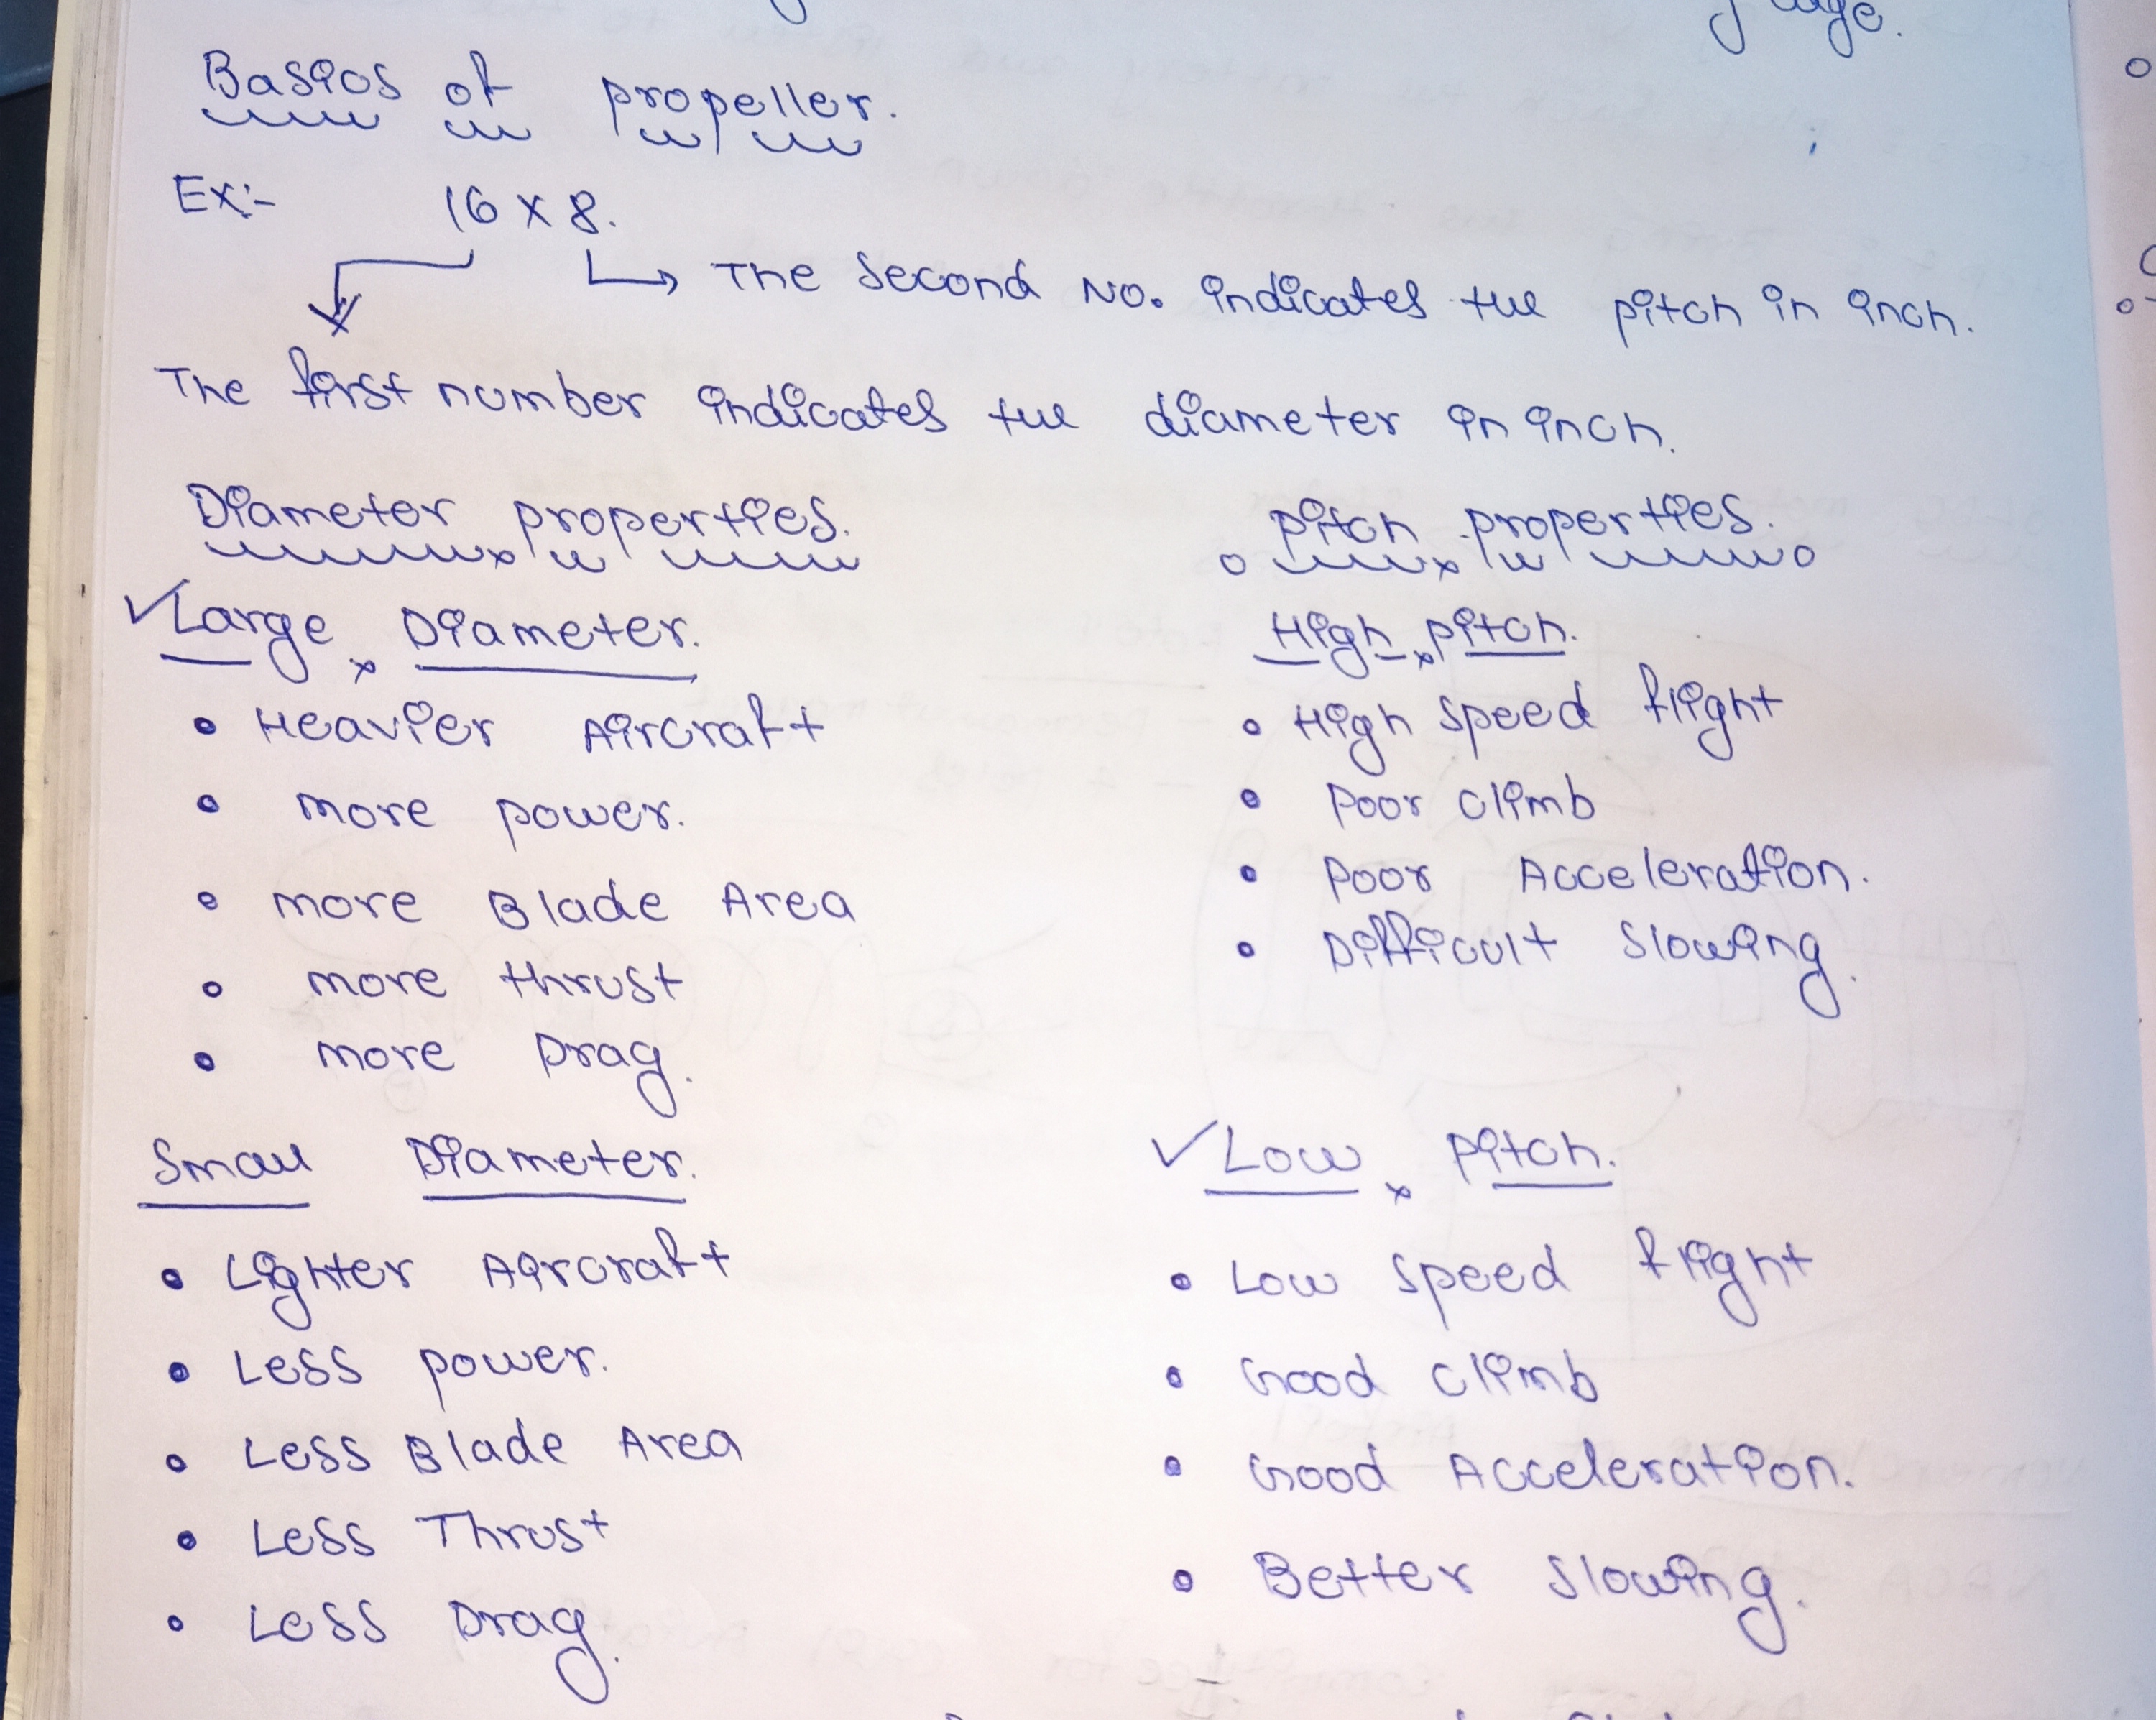 Basics of propeller.
Ex:- 16 x 8.
The second No. indicates the pitch in inch.
The first number indicates the diameter in inch.
Diameter properties.
✓Large Diameter.
• Heavier Aircraft
• more power.
• more Blade Area
• more thrust
• more Drag.
Small Diameter.
• Lighter Aircraft
• Less power.
• Less Blade Area
• Less Thrust
• Less Drag.
pitch properties.
High pitch.
• High speed flight
• Poor climb
• Poor Acceleration.
• Difficult slowing.
✓Low pitch.
• Low speed flight
• Good climb
• Good Acceleration.
• Better slowing.